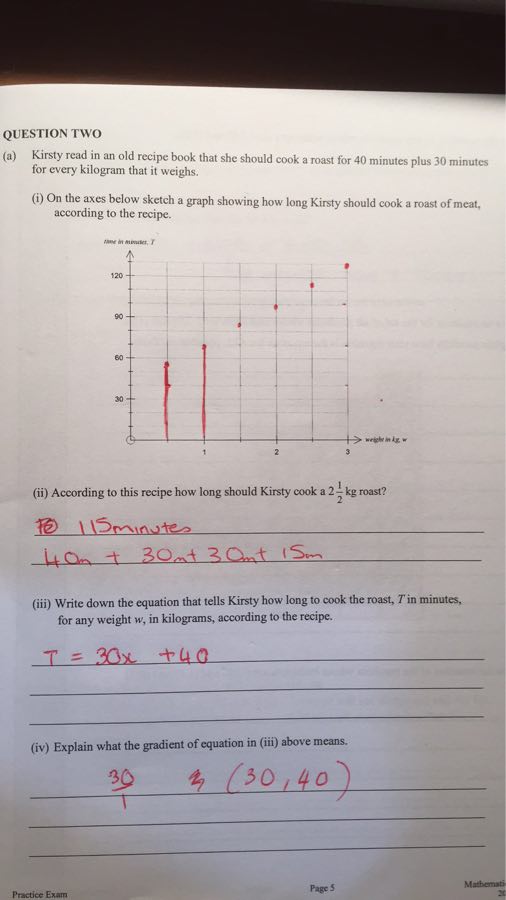 QUESTION TWO
(a) Kirsty read in an old recipe book that she should cook a roast for 40 minutes plus 30 minutes
for every kilogram that it weighs.
(i) On the axes below sketch a graph showing how long Kirsty should cook a roast of meat,
according to the recipe.
time in minutes, T
120
90
60
30
0
1 2 3
weight in kg, w
(ii) According to this recipe how long should Kirsty cook a 2 1/2 kg roast?
115 minutes
40m + 30m + 30m + 15m
(iii) Write down the equation that tells Kirsty how long to cook the roast, T in minutes,
for any weight w, in kilograms, according to the recipe.
T = 30x + 40
(iv) Explain what the gradient of equation in (iii) above means.
30/1 (30, 40)
Practice Exam
Page 5